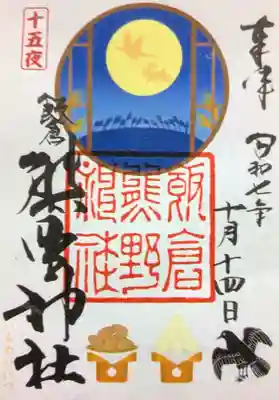 十五夜
奉拝
令和七年
十月十四日
飯倉
熊野
神社
飯倉
熊野神社